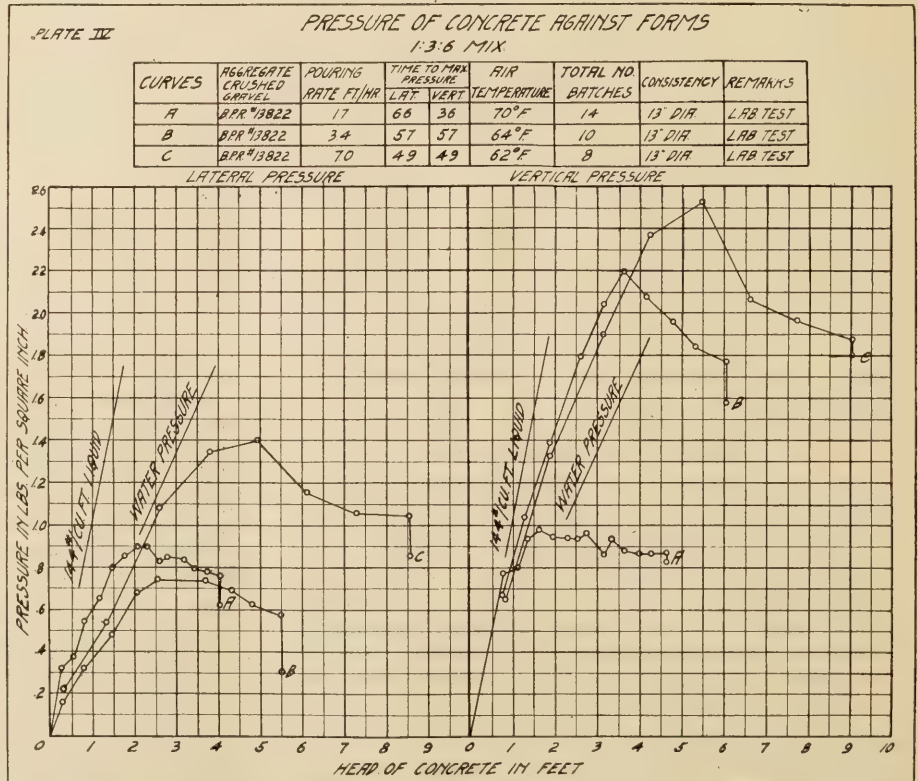 PLATE IV
PRESSURE OF CONCRETE AGAINST FORMS
1:3:6 MIX
CURVES AGGREGATE CRUSHED GRAVEL POURING RATE FT/HR TIME TO MAX PRESSURE LAT. VERT AIR TEMPERATURE TOTAL NO. BATCHES CONSISTENCY REMARKS
A B.P.R #13822 17 66 36 70°F 14 13" DIA. LAB TEST
B B.P.R #13822 34 57 57 64°F 10 13" DIA. LAB TEST
C B.P.R #13822 70 49 49 62°F 8 13" DIA. LAB TEST
LATERAL PRESSURE VERTICAL PRESSURE
2.6
2.4
2.2
2.0
1.8
1.6
1.4
1.2
1.0
.8
.6
.4
.2
PRESSURE IN LBS. PER SQUARE INCH
144#/CU.FT. LIQUID
WATER PRESSURE
A
B
C
144#/CU.FT. LIQUID
WATER PRESSURE
A
B
C
0 1 2 3 4 5 6 7 8 9 0 1 2 3 4 5 6 7 8 9 10
HEAD OF CONCRETE IN FEET